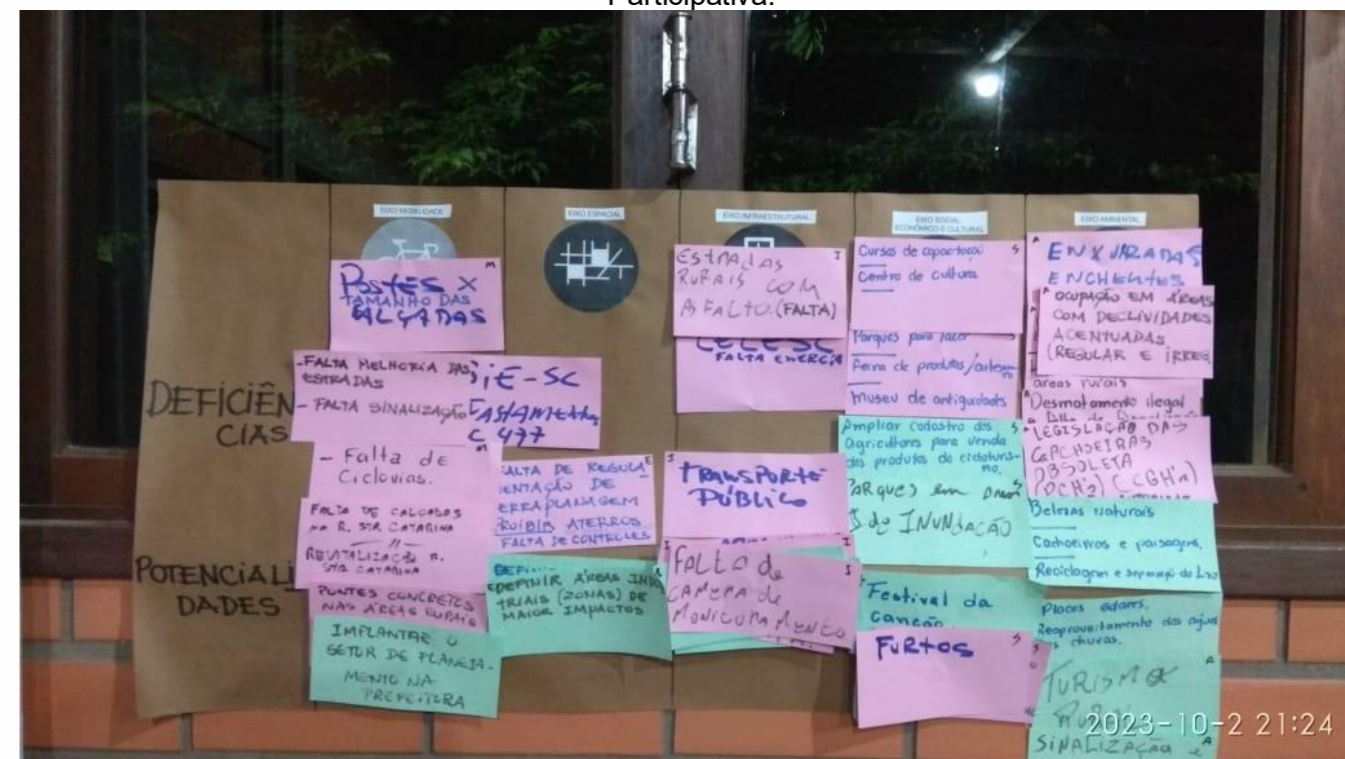 Participativa.
EIXO MOBILIDADE
EIXO ESPACIAL
EIXO INFRAESTRUTURAL
EIXO SOCIAL,
ECONÔMICO E CULTURAL
EIXO AMBIENTAL
DEFICIÊN
CIAS
POTENCIALI
DADES
M
POSTES X
TAMANHO DAS
CALÇADAS
-FALTA MELHORIA DAS
ESTRADAS
- FALTA SINALIZAÇÃO
SIE-SC
C 477
M
- Falta de
Ciclovias.
FALTA DE CALÇADAS
NA R. STA CATARINA
REVITALIZAÇÃO R.
STA CATARINA
PONTES CONCRETOS
NAS ÁREAS RURAIS
IMPLANTAR O
SETOR DE PLANEJA-
MENTO NA
PREFEITURA
E
FALTA DE REGULA
ENTAÇÃO DE
ERRAPLANAGEM
PROIBIR ATERROS
FALTA DE CONTROLES
DEFINIR ÁREAS INDUS
TRIAIS (ZONAS) DE
MAIOR IMPACTOS
I
ESTRADAS
RURAIS COM
ASFALTO. (FALTA)
CELESC
FALTA ENERGIA
I
TRANSPORTE
PÚBLICO
I
FALTA de
CAMERA de
MONITORAMENTO
S
Cursos de capacitação
Centro de cultura
Parques para lazer
Feira de produtos/artesa
museu de antiguidades
Ampliar cadastro dos
agricultores para venda
dos produtos do cicloturis-
mo.
S
PARQUES em áreas
S de INUNDAÇÃO
Festival da
canção.
FURTOS
S
A
ENXURRADAS
ENCHENTES
A OCUPAÇÃO EM ÁREAS
COM DECLIVIDADES
ACENTUADAS
(REGULAR E IRREG
áreas rurais
Desmatamento ilegal
A LEGISLAÇÃO DAS
CACHOEIRAS
OBSOLETA
Belezas Naturais
Cachoeiras e paisagens.
Reciclagem e separação do Lixo
Placas solares.
Reaproveitamento das águas
das chuvas.
A
TURISMO
RURAL
SINALIZAÇÃO e
A
2023-10-2 21:24